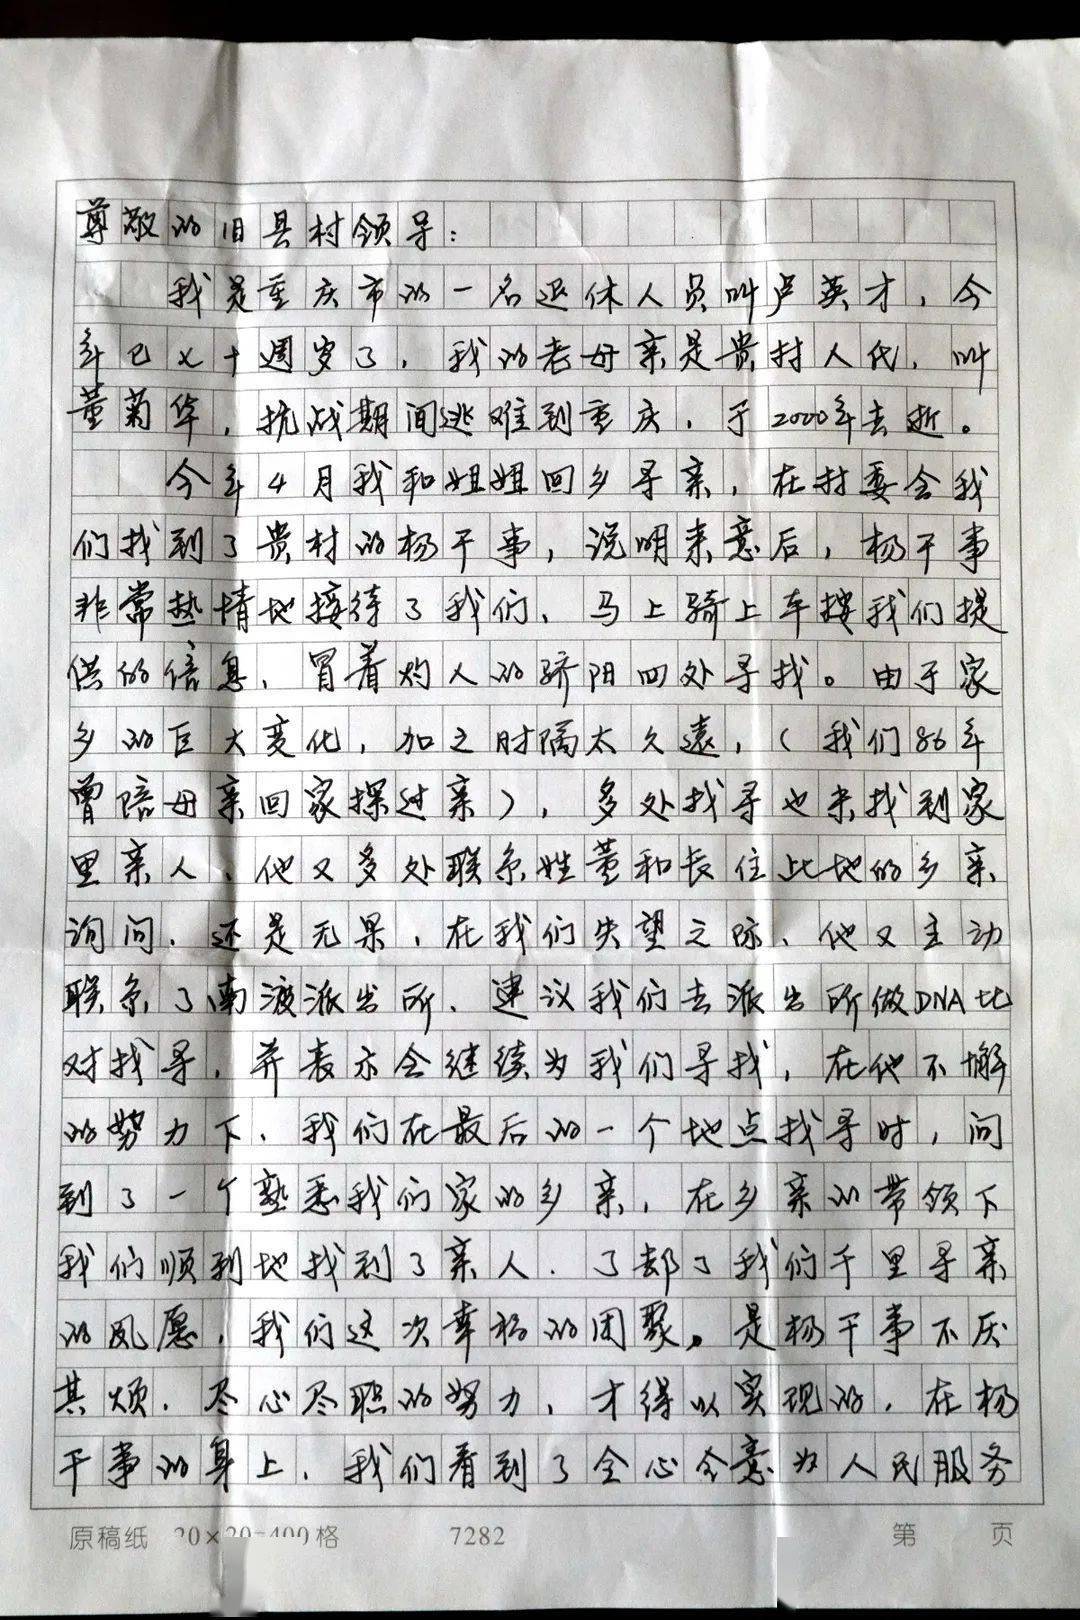 尊敬的旧县村领导：
我是重庆市的一名退休人员叫卢英才，今
年已七十週岁了，我的老母亲是贵村人氏，叫
董菊华，抗战期间逃难到重庆，于2000年去逝。
今年4月我和姐姐回乡寻亲，在村委会我
们找到了贵村的杨干事，说明来意后，杨干事
非常热情地接待了我们、马上骑上车按我们提
供的信息、冒着灼人的骄阳四处寻找。由于家
乡的巨大变化，加之时隔太久遠，（我们86年
曾陪母亲回家探过亲），多处找寻也未找到家
里亲人、他又多处联系姓董和长住此地的乡亲
询问，还是无果，在我们失望之际、他又主动
联系了南渡派出所、建议我们去派出所做DNA比
对找寻，并表示会继续为我们寻找，在他不懈
的努力下、我们在最后的一个地点找寻时，问
到了一个熟悉我们家的乡亲，在乡亲的带领下
我们顺利地找到了亲人．了却了我们千里寻亲
的夙愿，我们这次幸福的团聚。是杨干事不厌
其烦．尽心尽职的努力，才得以实现的，在杨
干事的身上，我们看到了全心全意为人民服务
原稿纸 20×20=400格 7282 第 页